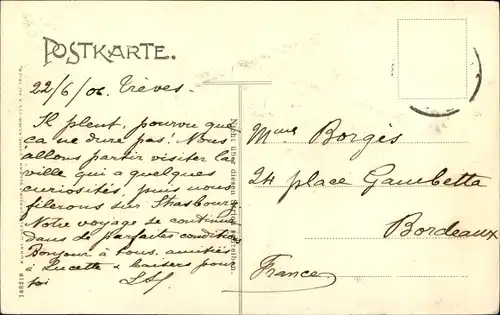 POSTKARTE.
22/6/06. Trèves.
Il pleut, pourvu que
ça ne dure pas! Nous
allons partir visiter la
ville qui a quelques
curiosités, puis nous
filerons sur Strasbourg.
Notre voyage se continue
dans de parfaites conditions
Bonjour à tous, amitiés
à Lucette & baisers pour
toi
Nicht über diesen Strich schreiben.
Mme Borgès
24 place Gambetta
Bordeaux
France